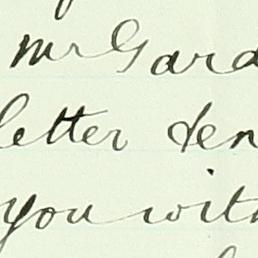 Mr Gard
letter den
you with